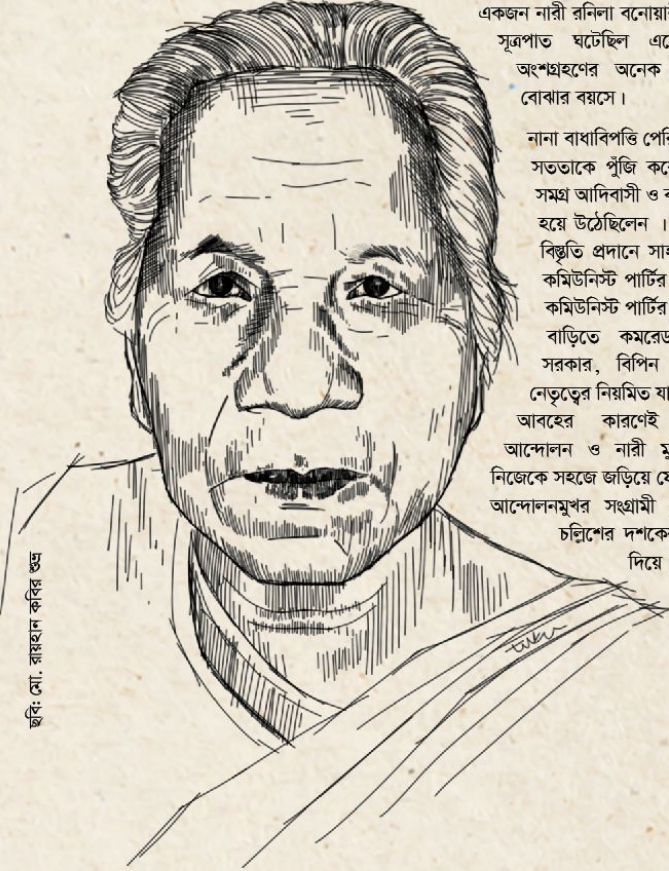 একজন নারী রনিলা বনোয়া
সূত্রপাত ঘটেছিল
অংশগ্রহণের অনেক
বোঝার বয়সে।
নানা বাধাবিপত্তি
সততাকে পুঁজি
সমগ্র আদিবাসী ও
হয়ে উঠেছিলেন ।
বিস্তৃতি প্রদানে
কমিউনিস্ট পার্টির
কমিউনিস্ট পার্টির
বাড়িতে কমরেড
সরকার, বিপিন
নেতৃত্বের নিয়মিত
আবহের কারণেই
আন্দোলন ও নারী
নিজেকে সহজে জড়িয়ে
আন্দোলনমুখর সংগ্রামী
চল্লিশের দশকে
দিয়ে
ছবি: মো. রায়হান কবির শুভ্র